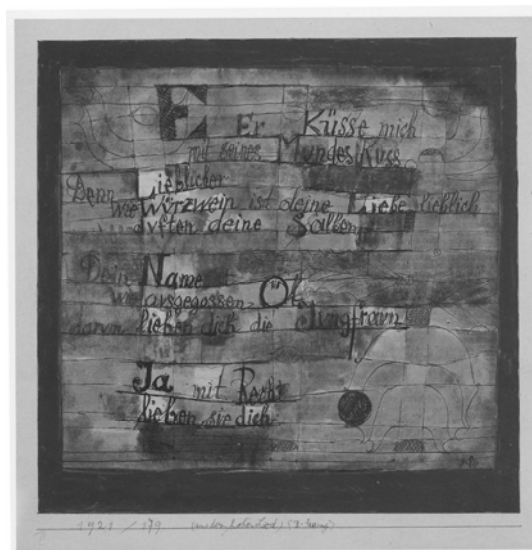 Er Küsse mich
mit seines Mundes Kuss
Denn Lieblicher
wie Würzwein ist deine Liebe lieblich
duften deine Salben
Dein Name
wie ausgegossen Öl
darum lieben dich die Jungfraun
Ja mit Recht
lieben sie dich
1921 / 179